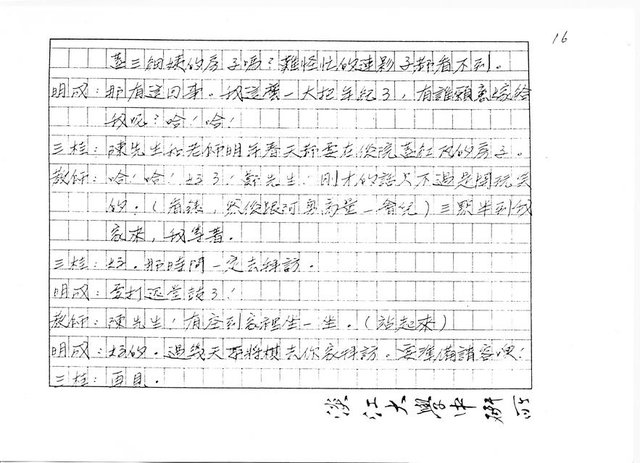 16
蓋三個姨的房子嗎？難怪忙的連影子都看不到。
明成：那有這回事。我這麼一大把年紀了，有誰願意嫁給
我呢？哈！哈！
三桂：陳先生和老師明年春天都要在後院蓋紅瓦的房子。
教師：哈！哈！好了！鄭先生！剛才的話只不過是開玩笑
的。（看錶，然後跟阿興商量一會兒）三點半到我
家來，我等著。
三桂：好，那時間一定去拜訪。
明成：要打退堂鼓了！
教師：陳先生！有空到家裡坐一坐。（站起來）
明成：好的，過幾天本將棋去你家拜訪，要準備請客唷！
三桂：再見。
淡江大學中研所